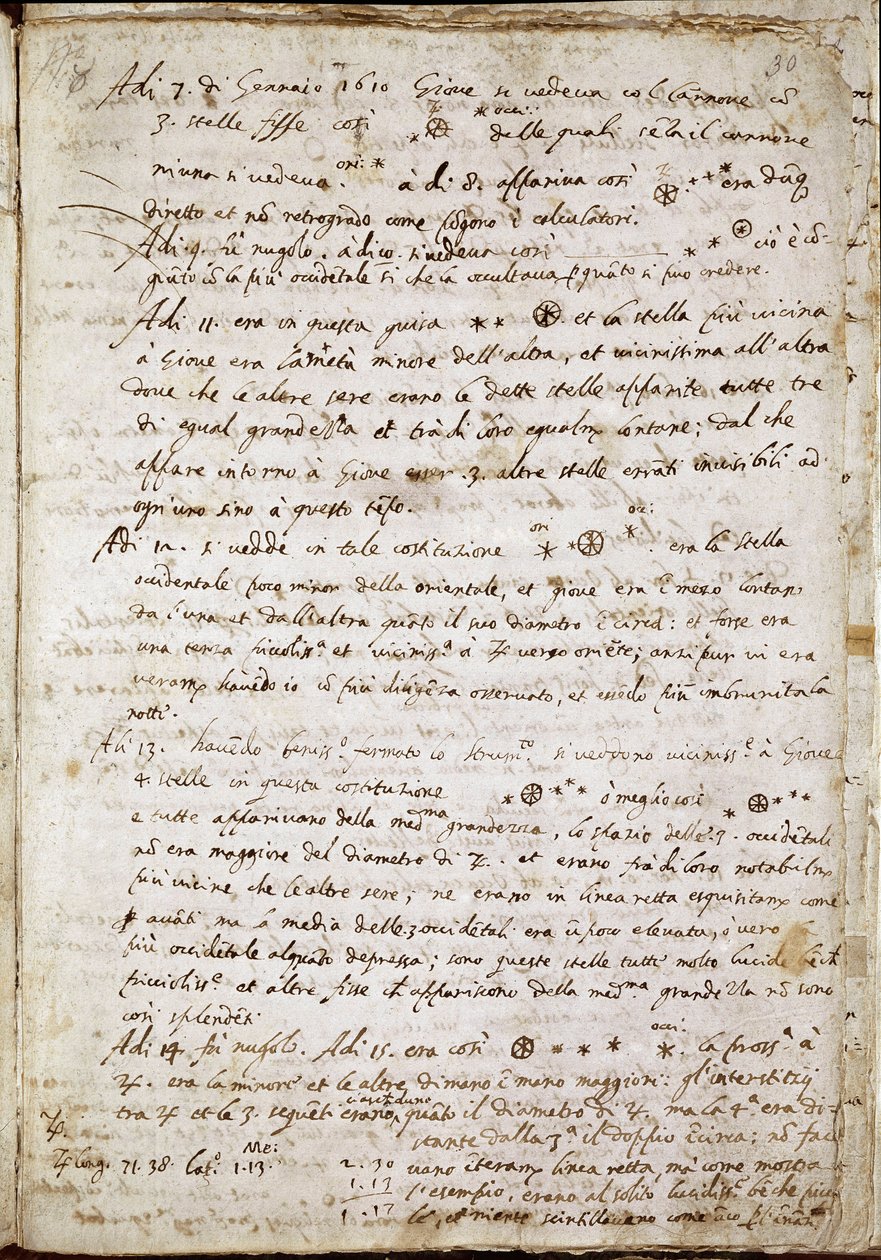 30
Adi 7. di Gennaio 1610 Giove si vedeva col Cannone cō
3. stelle fisse così occi: delle quali sēza il cannone
niuna si vedeva. ori: à dì 8. appariva così era dūq
diretto et nō retrogrado come pōgono i calculatori.
Adi. 9. fù nugolo. à dì 10. si vedeva così ciò è cō-
giūto cō la più occidētale sì che la occultava p quāto si può credere.
Adi 11. era in questa guisa et la stella più vicina
à Giove era la metà minore dell'altra, et vicinissima all'altra
dove che le altre sere erano le dette stelle apparite tutte tre
di egual grandezza et trà di loro egualm lontane; dal che
appare intorno à Giove esser .3. altre stelle errāti invisibili ad
ogn'uno sino à questo tēpo.
Adi 12. si vedde in tale costituzione ori occi: era la stella
occidentale poco minor della orientale, et giove era ī mezo lontan
da l'una et dall'altra quāto il suo diametro ī circa: et forse era
una terza piccoliss.a et viciniss.a à ♃ verso oriēte; anzi pur vi era
veram havēdo io cō più diligēza osservato, et essēdo più imbrunita la
notte.
Adi 13. havēdo beniss.o fermato lo strum.to si veddono viciniss.e à Giove
4. stelle in questa costituzione ò meglio così
e tutte apparivano della med.ma grandezza, lo spazio delle .3. occidētali
nō era maggiore del diametro di ♃. et erano frà di loro notabilm
più vicine che le altre sere; ne erano in linea retta esquisitam come
p avāti ma la media delle 3 occidētali era ū poco elevata, ò vero la
più occidētale alquāto depressa; sono queste stelle tutte molto lucide bēch
piccioliss.e et altre fisse ch appariscono della med.ma grandezza nō sono
così splendēti.
Adi 14 fù nugolo. Adi 15. era così occi: la pross.a à
♃. era la minore et le altre di mano ī mano maggiori: gl'interstizij
tra ♃ et le 3. sequēti erano ciascheduno quāto il diametro di ♃. ma la 4.a era di-
stante dalla 3.a il doppio īcirca; nō face
vano īteram linea retta, mà come mostra
l'esempio, erano al solito lucidiss.e bēche picco
le, et niente scintillavano come āco p l'inanzi
♃.
♃ long. 71.38. lat.o Me: 1.13.
2.30
1.13
1.17